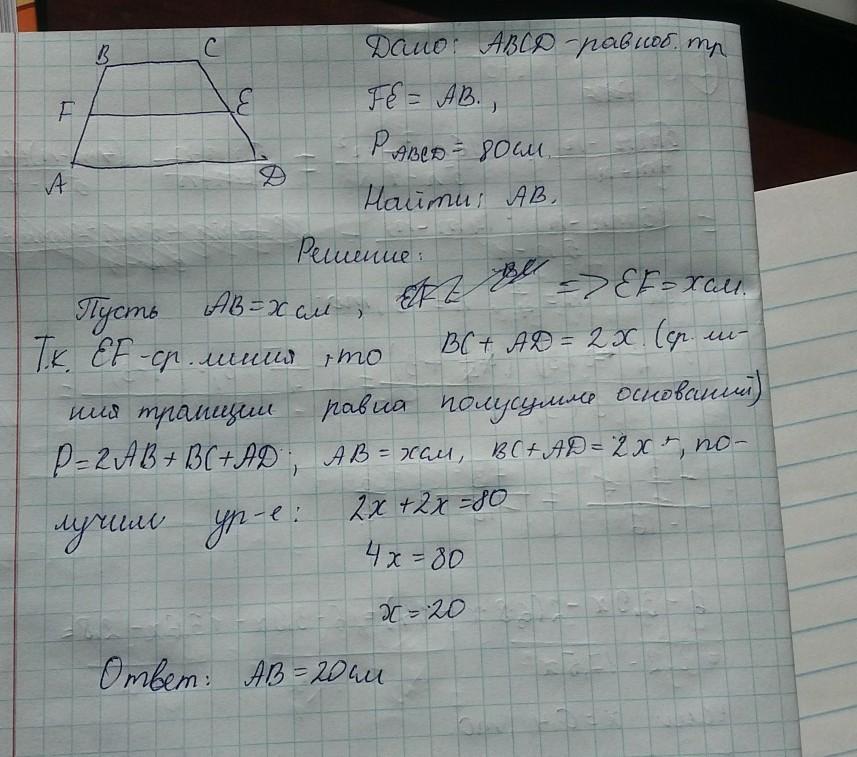 B C
F E
A D
Дано: ABCD - равноб. тр
FE = AB.,
P ABCD = 80см.
Найти: AB.
Решение:
Пусть AB = x см, => EF = x см.
Т.к. EF - ср. линия, то BC + AD = 2x. (ср. ли-
ния трапеции равна полусумме оснований)
P = 2AB + BC + AD; AB = x см, BC + AD = 2x, по-
лучим ур-е: 2x + 2x = 80
4x = 80
x = 20
Ответ: AB = 20 см